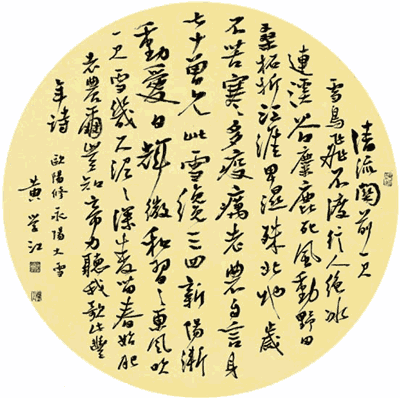 清流関前一尺
雪鳥飛不渡行人絕冰
連溪谷麋鹿死風動野田
桑柘折江淮卑濕殊北地歲
不苦寒〻多疫癘老農自言身
七十曾見此雪纔三四新陽漸
動愛日輝微和習〻東風吹
一尺雪幾尺泥〻深麥苗春始肥
老農爾豈知帝力聽我歌此豐
年詩
歐陽修永陽大雪
黄江